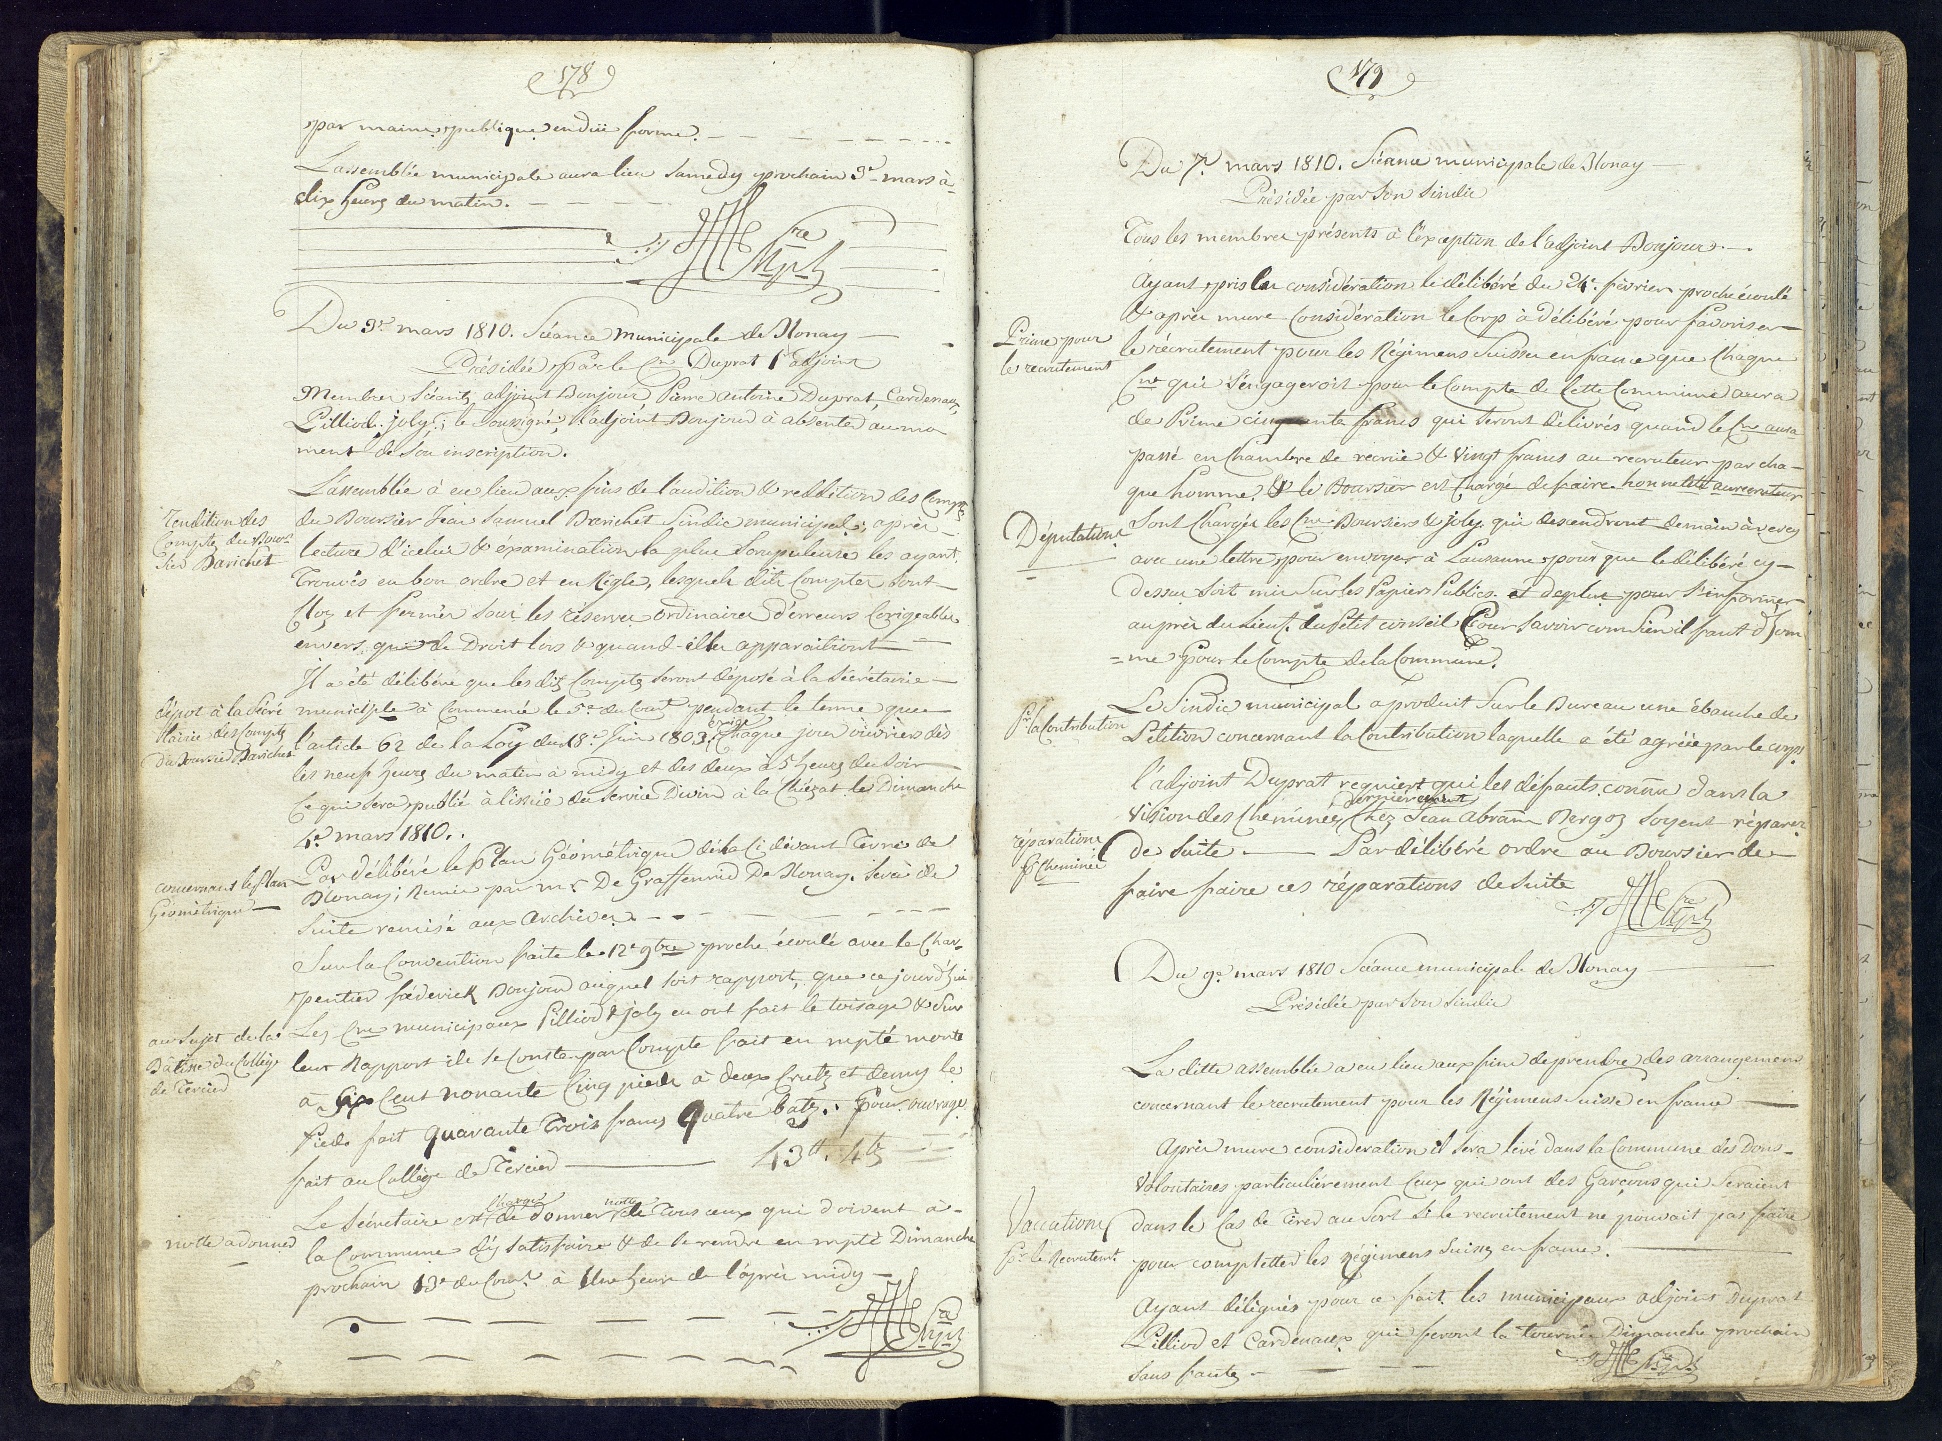 178
par main publique en düe forme.
L'assemblée municipale aura lieu Samedy prochain 3e mars à
dix heures du matin.
Du 3e mars 1810. Séance municipale de Blonay
Présidée par le Cn Duprat 1r adjoint
Membres Séants, adjoint Bonjour Pierre antoine Duprat, Cardenaux,
Pilliod, joly, le Soussigné, l'adjoint Bonjour à absenté au mo
ment de son inscription.
L'assemblée à eu lieu aux fins de l'audition & reddition des Comptes
Rendition des
Comptes du Bour
sier Barichet
du Boursier Jean Samuel Barichet Sindic municipal, après
lecture d'iceluy & éxamination la plus Scrupuleuse les ayant
Trouvés en bon ordre et en Règle, lesquels dits Comptes sont
Cloz et fermés sous les réserves ordinaires d'erreurs Corigeables
envers que de Droit lors & quand elles apparaitront
Il a été délibéré que les dits Comptes seront déposé à la Sécrétairie
dépot à la Sécré
tairie des Comptes
du Boursier Barichet
municiple à Commencé le 5e du Court pendant le terme que
l'article 62 de la Loy du 18e Juin 1803. exige Chaque jour ouvriers dès
les neuf heures du matin à midy et des deux à 5 heures du Soir
Ce qui sera publié à l'issüe du Service Divin à la Chiézat le Dimanche
4e mars 1810.
concernant le plan
Géométrique
Par délibéré le plan Géométrique de la Ci devant Terre de
Blonay; Remis par mr De Graffenried De Blonay, Sera de
Suite remisé aux archives.
Sur la Convention faite le 12e 9bre proche écoulé avec le Char-
pentier fréderick Bonjour auquel soit rapport, que ce jourd'hui
au Sujet de la
Bâtisse du Collège
de Tercier
Les Cns municipaux Pilliod & joly en ont fait le toisage & sur
leur Rapport ils se Conste par Compte fait en mpté monte
à Six Cent nonante Cinq pieds à deux Crutz et demy le
Pied fait quarante Trois francs quatre batz. Pour ouvrage
fait au Collège de Tercier 43 tt. 4 bz
notte à donner
Le Sécretaire est Chargé de donner notte de Tous ceux qui doivent à
la Commune d'y Satisfaire & de se rendre en mpté Dimanche
prochain 13e du Court à Une heure de l'après midy
179
Du 7e mars 1810. Séance municipale de Blonay
Présidée par son Sindic
Tous les membres présents à l'exception de l'adjoint Bonjour.
Ayant pris en considération le délibéré du 24e février proche écoulé
& après mure Considération le Corp à délibéré pour favoriser
Prime pour
le recrutement
le récrutement pour les Régimens Suisse en france que Chaque
Cne qui S'engageroit pour le Compte de Cette Commune aura
de Prime cinquante francs qui seront délivrés quand le Cne aura
passé en Chambre de recrüe & Vingt francs au recruteur par cha-
que homme, & le Boursier est Chargé de faire honneteté au recruteur
Députations
Sont Chargés les Cns Boursiers & joly qui descendront demain à vevey
avec une lettre pour envoyer à Lausanne pour que le délibéré cy-
dessus soit mis Sur les Papiers Publics. et de plus pour S'informer
auprès du Lieut. du Petit conseil Pour Savoir combien il faut d'hom
=me Pour le Compte de la Commune.
Pr la Contribution
Le Sindic municipal a produit Sur le Bureau une ébauche de
Pétition concernant la Contribution laquelle a été agréée par le corps.
l'adjoint Dupratt requiert qui les défauts connu dans la
Vision des Cheminées dernièrement Chez Jean Abram Bergoz soyent réparé
réparations
Pr Cheminée
de Suite. Par délibéré ordre au Boursier de
faire faire ces réparations de Suite
Du 9e mars 1810 Séance municipale de Blonay
Présidée par son Sindic
La ditte assemblée a eu lieu aux fins de prendre des arrangemens
concernant le recrutement pour les Régimens Suisse en france
Après mure considération il sera levé dans la Commune des Dons-
Volontaires particulièrement Ceux qui ont des Garçons qui Seraient
Vaccations
Pr le Recrutemt.
dans le Cas de Tirer au Sort Si le recrutement ne pouvait pas faire
pour completter les Régimens Suisse en france.
Ayant délégués pour ce fait les municipaux adjoint Duprat
Pilliod et Cardenaux qui feront la tournée Dimanche prochain
Sans faute.